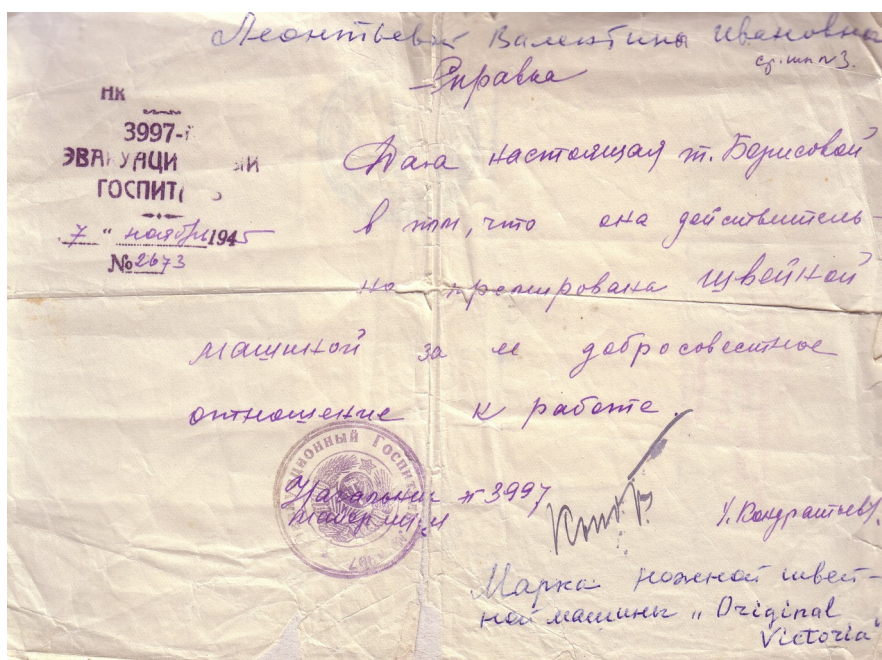 Леонтьевой Валентины Ивановны
ср. шк N 3.
Справка
НК
3997-й
ЭВАКУАЦИ ИЙ
ГОСПИТ
"7" ноября 1945
№ 2673
Дана настоящая т. Борисовой
в том, что она действитель-
но премирована швейной
машинкой за ее добросовестное
отношение к работе.
Начальник Г 3997
майор м/с
У. Кондратьев
Марка ножной швей-
ной машины „Original
Victoria"